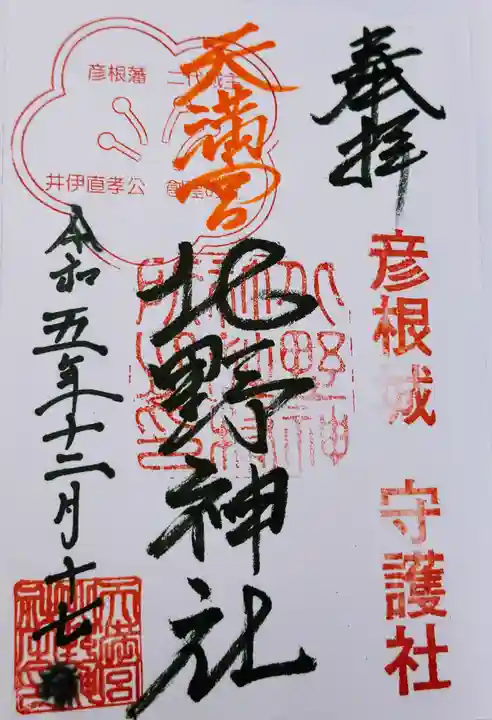 奉拝
彦根城 守護社
天満宮
北野神社
彦根藩 二代城主
井伊直孝公
令和五年十二月十七